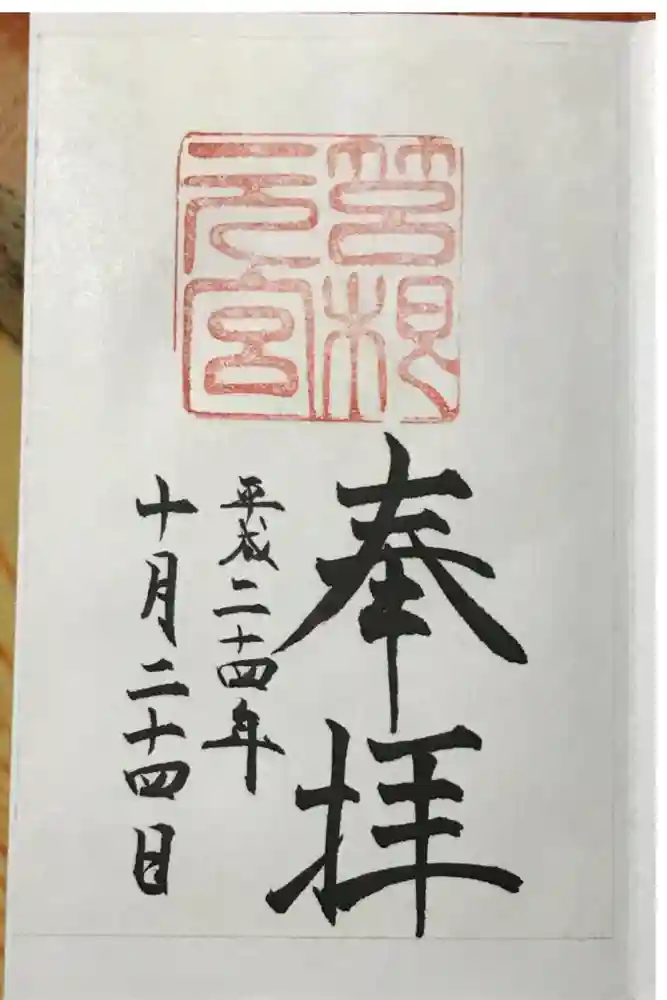 筥根
元宮
奉拝
平成二十四年
十月二十四日